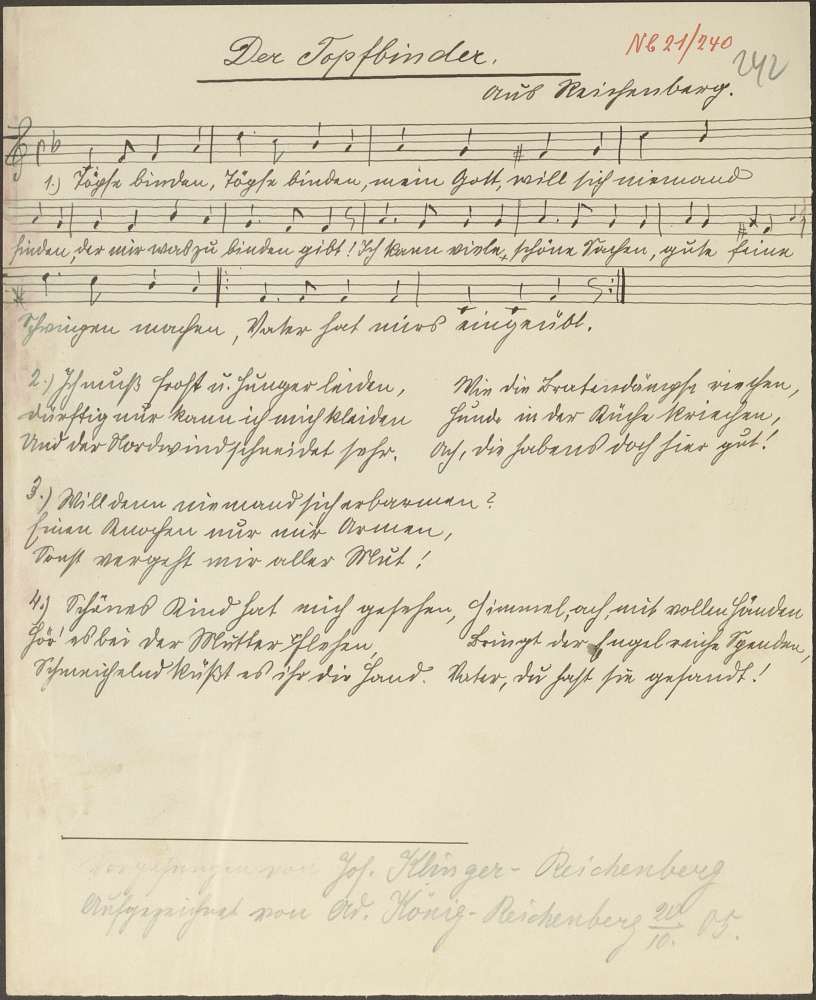 Der Topfbinder.
Nb 21/240
242
Aus Reichenberg.
1.) Töpfe binden, Töpfe binden, mein Gott, will sich niemand
finden, der mir was zu binden gibt! Ich kann viele, schöne Sachen, gute feine
Schwingen machen, Vater hat mirs eingeübt.
2.) Ich muß Frost u. Hunger leiden,
dürftig nur kann ich mich kleiden
Und der Nordwind schneidet sehr.
Wie die Bratendämpfe riechen,
Hunde in der Küche kriechen,
Ach, die habens doch hier gut!
3.) Will denn niemand sich erbarmen?
Einen Knochen nur mir Armen,
Sonst vergeht mir aller Mut!
4.) Schönes Kind hat mich gesehen,
Hör' es bei der Mutter flehen,
Schmeichelnd küßt es ihr die Hand.
Himmel, ach, mit vollen Händen
Bringt der Engel reiche Spenden,
Vater, du hast sie gesandt!
Vorgesungen von Jos. Klinger - Reichenberg
Aufgezeichnet von Ad. König - Reichenberg 20/10. 05.